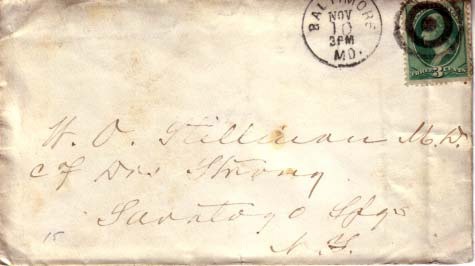 BALTIMORE
NOV
10
3PM
MD.
THREE 3 CENTS
W. O. Stillman M.D.
c/o Drs Strong
Saratoga Spgs
N. Y.
15